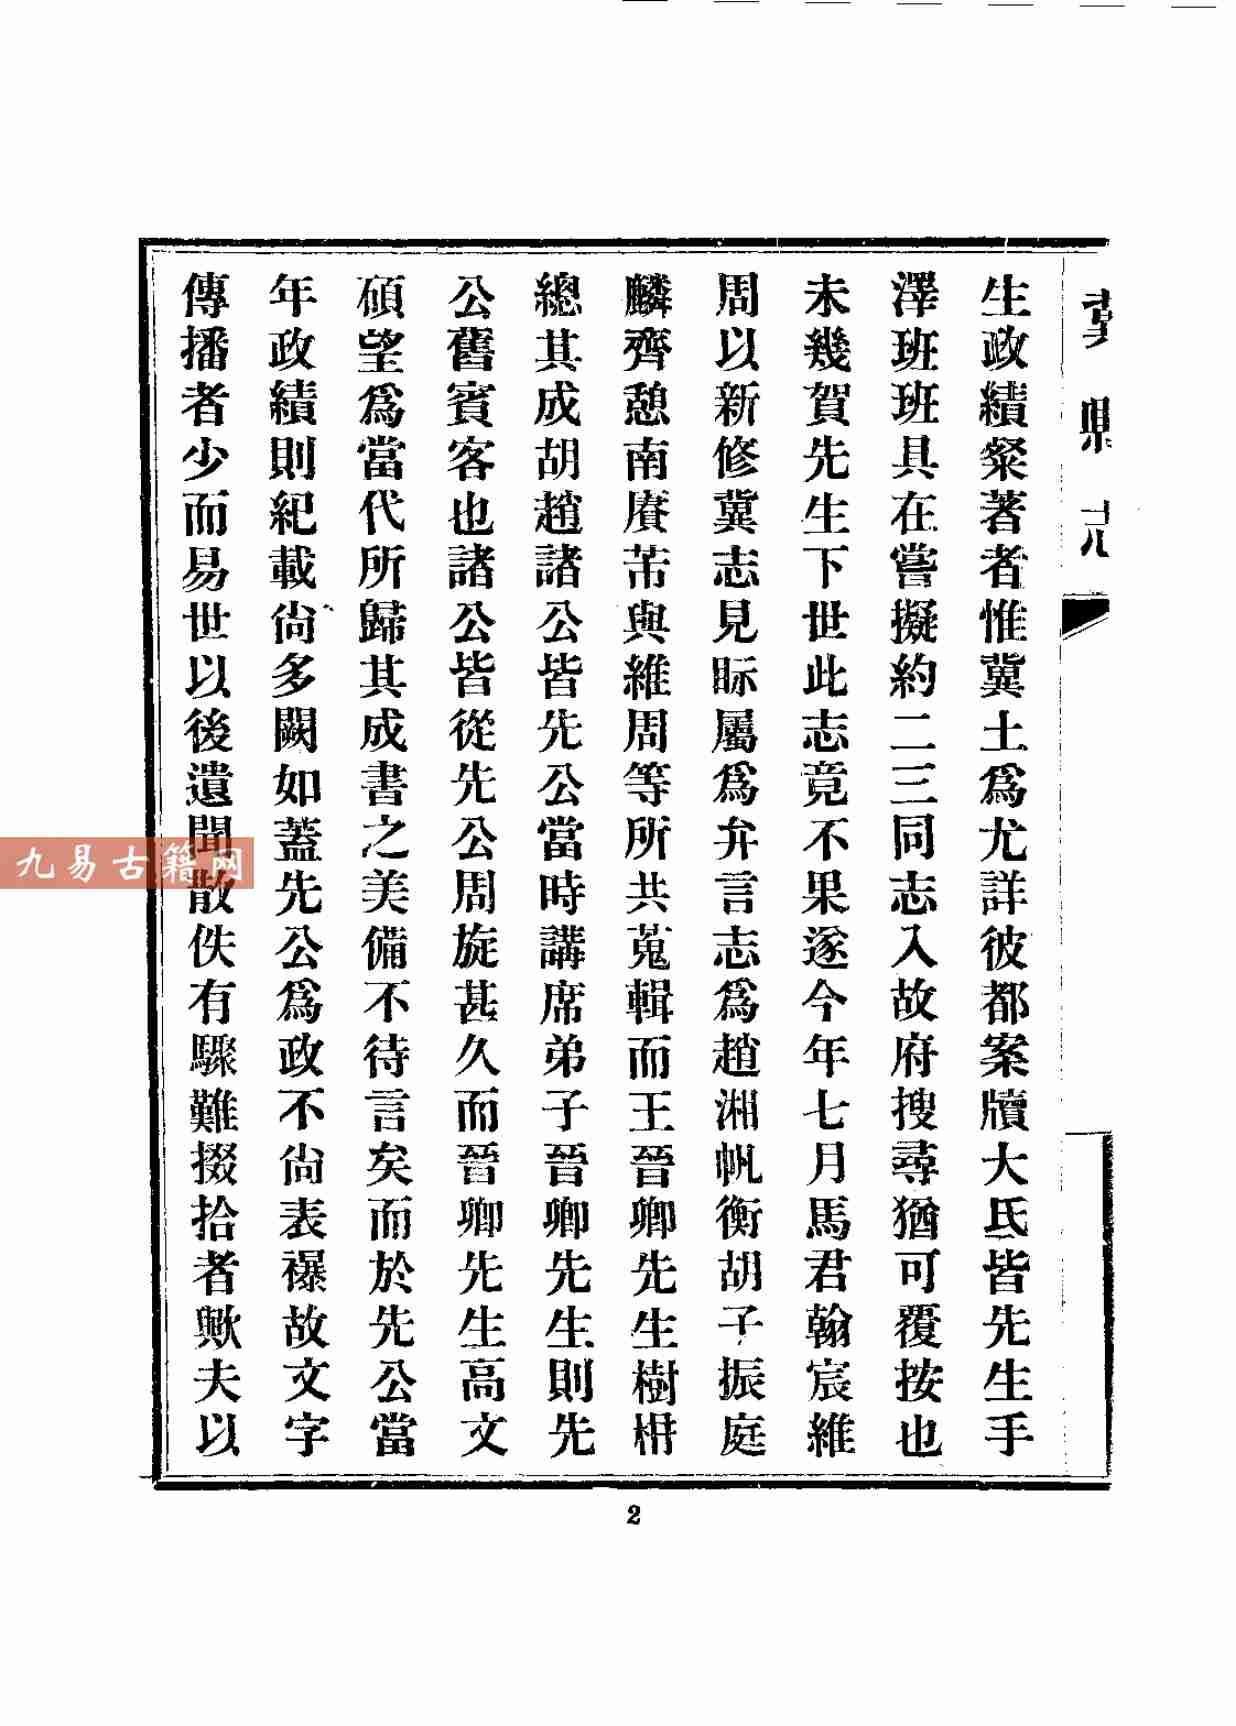 冀縣志
生政績粲著者惟冀土爲尤詳彼都案牘大氐皆先生手
澤班班具在嘗擬約二三同志入故府搜尋猶可覆按也
未幾賀先生下世此志竟不果遂今年七月馬君翰宸維
周以新修冀志見眎屬爲弁言志爲趙湘帆衡胡子振庭
麟齊憩南賡芾與維周等所共蒐輯而王晉卿先生樹枏
總其成胡趙諸公皆先公當時講席弟子晉卿先生則先
公舊賓客也諸公皆從先公周旋甚久而晉卿先生高文
碩望爲當代所歸其成書之美備不待言矣而於先公當
年政績則紀載尙多闕如蓋先公爲政不尙表襮故文字
傳播者少而易世以後遺聞散佚有驟難掇拾者歟夫以
九易古籍网
2